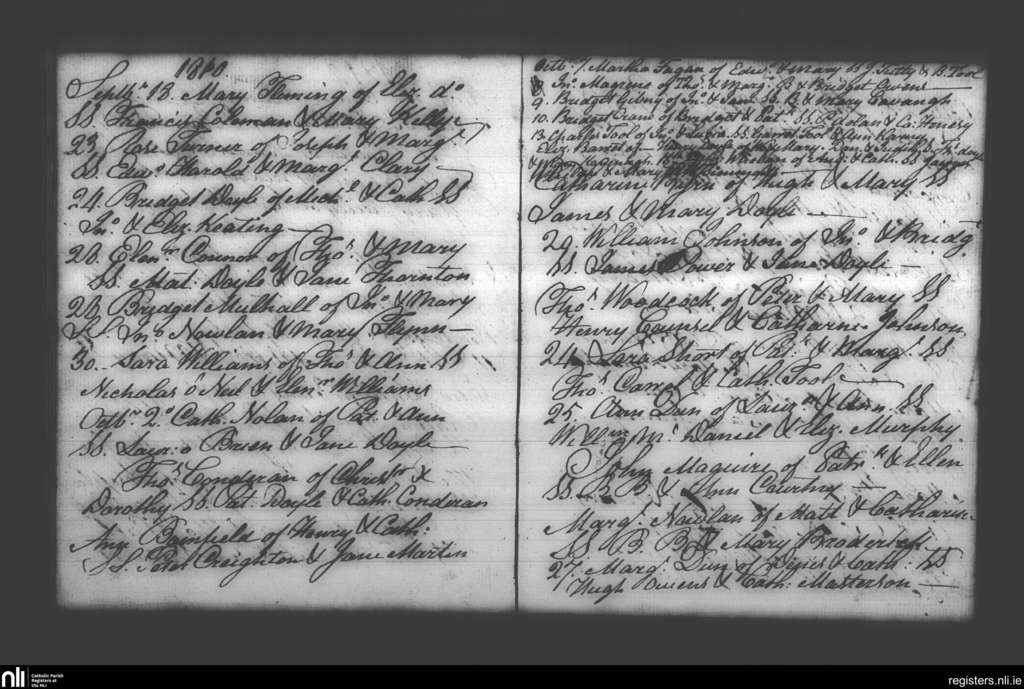 1810
Septbr. 18. Mary Fleming of Eliz. do.
SS. Francis Coleman & Mary Kelly
23. Rose Turner of Joseph & Margt.
SS. Edwd. Harold & Margt. Clary
24. Bridget Doyle of Michl. & Cath SS
Jno. & Eliz. Keating
28. Elenr. Connor of Thos. & Mary
SS. Mat. Doyle & Jane Thornton
28 Bridget Mulhall of Jno. & Mary
SS. Jno. Nowlan & Mary Flynn
30. Sara Williams of Thos. & Ann SS
Nicholas o Neil & Elenr. Williams
Octbr. 2o. Cath. Nolan of Pat. & Ann
SS. Laur: o Brien & Jane Doyle
Thos. Conderan of Christr. &
Dorothy SS. Pat. Doyle & Cath. Conderan
Ann Bamfield of Henry & Cath.
SS. Peter Creighton & Jane Martin
Octbr. 7. Martha Fagan of Edwd. & Mary SS J. Tutty & B. Tool
Jno. Maguire of Thos. & Marg. B. & Bridget Owens
9. Bridget of Jno. & Jane SS. B. & Mary Cavanagh
10. Bridget of Bridget & Pat. SS. P. Nolan & Co. Henesy
13. Charles Tool of Jno. & SS. Garret Tool & Ann
Eliz. Barret of
Catharine Byrn of Hugh & Mary SS
James & Mary Doyle
20. William Johnson of Jno. & Bridgt.
SS. James Power & Jane Doyle
Thos. Woodcock of Peter & Mary SS
Henry Counsel & Catharine Johnson
24. Sara Short of Pat. & Margt. SS
Thos. Carrol & Cath. Tool
25. Ann Dun of Laur. & Ann. SS.
Willm. Mc. Daniel & Eliz. Murphy.
John Maguire of Patrk. & Ellen
SS. B. B & Ann Courtny
Margt. Nowlan of Matt & Catharine
SS B. B & Mary Broderick
27. Marg. Dun of Denis & Cath: SS
Hugh Owens & Cath: Masterson
nli Catholic Parish
Registers at
the NLI
registers.nli.ie